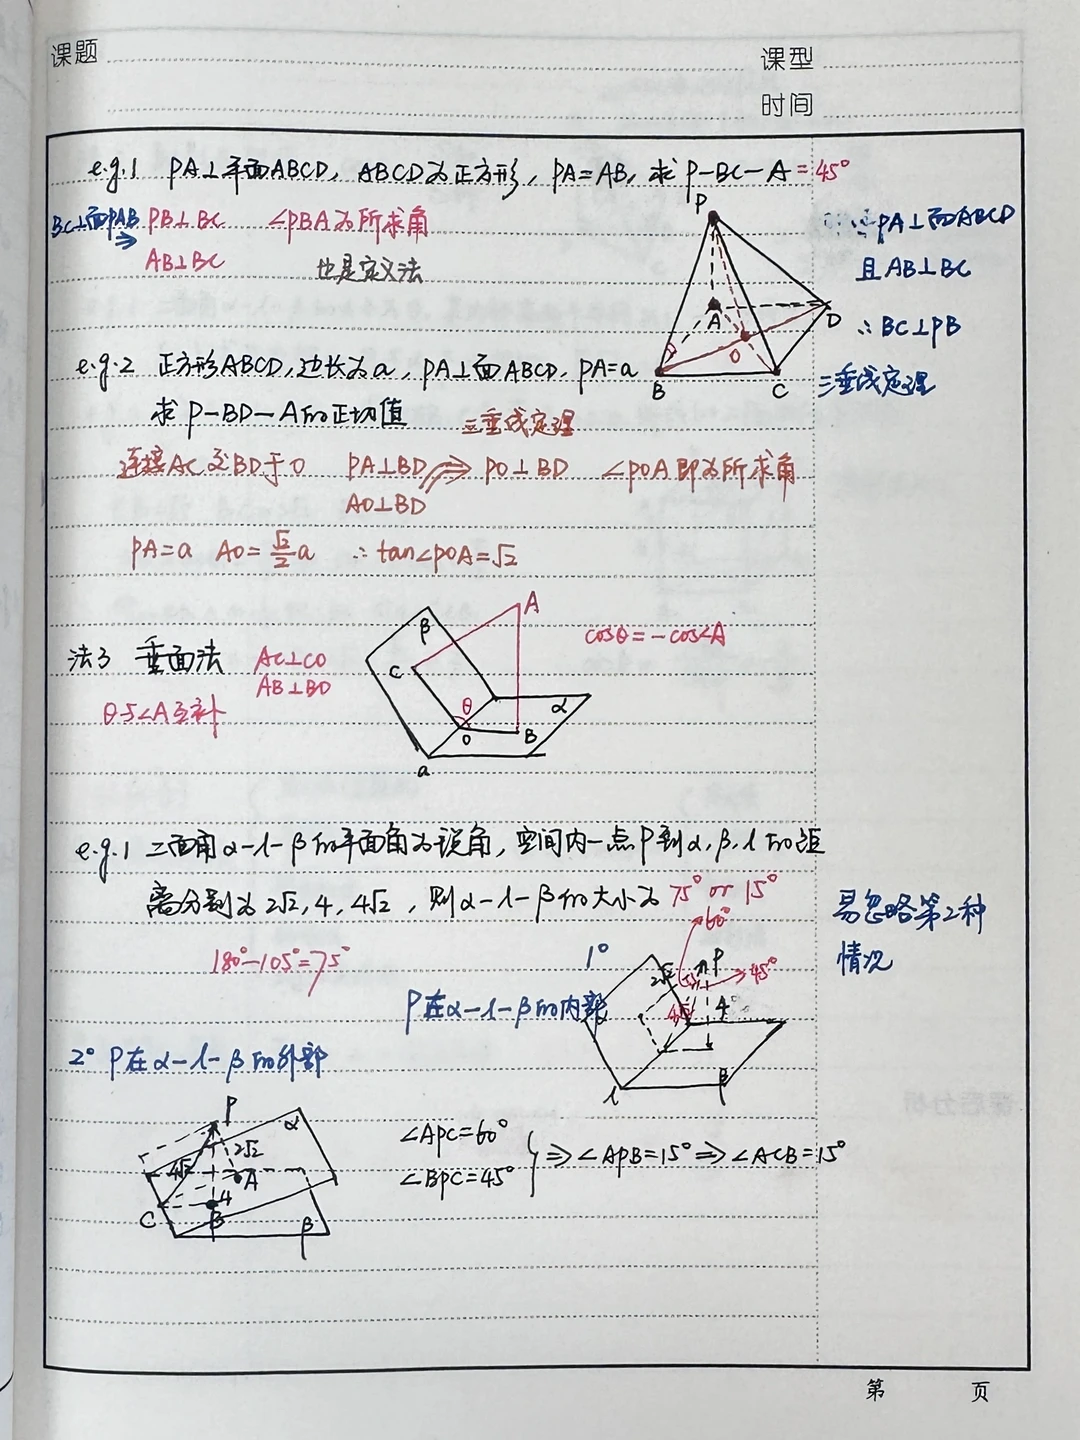 课题
课型
时间
e.g.1 PA⊥平面ABCD, ABCD为正方形, PA=AB, 求 P-BC-A = 45°
BC⊥面PAB ⇒ PB⊥BC ∠PBA为所求角
AB⊥BC 也是定义法
PA⊥面ABCD
且 AB⊥BC
∴ BC⊥PB
三垂线定理
P
A
B
C
D
O
e.g.2 正方形ABCD, 边长为a, PA⊥面ABCD, PA=a
求 P-BD-A的正切值 三垂线定理
连接AC交BD于O PA⊥BD ⇒ PO⊥BD ∠POA即为所求角
AO⊥BD
PA=a AO=√2/2 a ∴ tan∠POA=√2
法3 垂面法 AC⊥CO
AB⊥BO
θ与∠A互补
cosθ=-cos∠A
A
β
C
θ
α
O
B
a
e.g.1 二面角α-l-β的平面角为锐角, 空间内一点P到α, β, l的距
离分别为2√2, 4, 4√2, 则α-l-β的大小为 75° or 15°
易忽略第2种
情况
180°-105°=75°
1°
P在α-l-β的内部
60°
P
45°
2√2
4√2
4
β
l
2° P在α-l-β的外部
P
α
2√2
4√2
A
4
C
B
β
∠APC=60°
∠BPC=45° } ⇒ ∠APB=15° ⇒ ∠ACB=15°
第 页